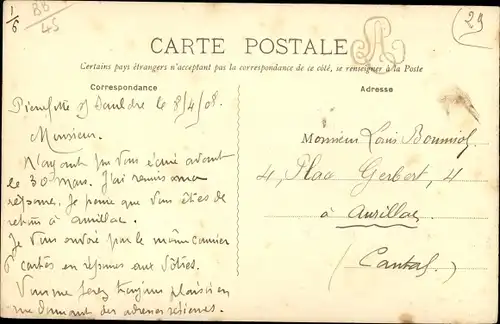 1/6
BB
45
29
CARTE POSTALE
Certains pays étrangers n'acceptant pas la correspondance de ce côté, se renseigner à la Poste
Correspondance
Adresse
Pierrefitte s/ Sauldre le 8/4/08.
Monsieur.
N'ayant pu vous écrire avant
le 30 Mars. J'ai remis ma
réponse, je pense que vous êtes de
retour à aurillac.
Je vous envoie par le même courrier
6 cartes en réponse aux vôtres.
Vous me ferez toujours plaisir en
me donnant des adresses
Monsieur Louis Bonmiol
4, Place Gerbert, 4
à Aurillac
(Cantal)